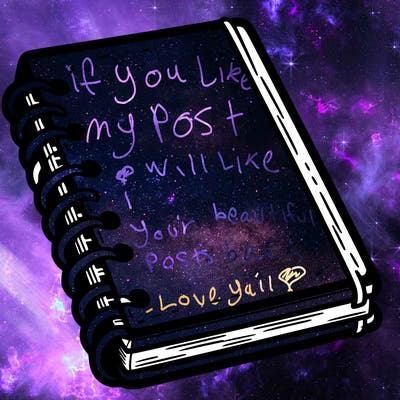 if you Like
my Post
I will Like
your beautiful
Posts
- Love yail